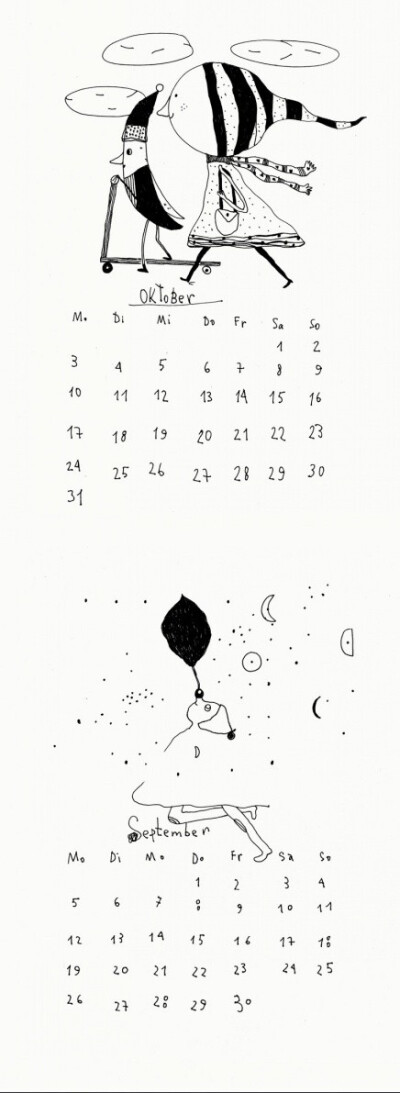 Oktober
Mo Di Mi Do Fr Sa So
1 2
3 4 5 6 7 8 9
10 11 12 13 14 15 16
17 18 19 20 21 22 23
24 25 26 27 28 29 30
31
D
September
Mo Di Mo Do Fr Sa So
1 2 3 4
5 6 7 8 9 10 11
12 13 14 15 16 17 18
19 20 21 22 23 24 25
26 27 28 29 30